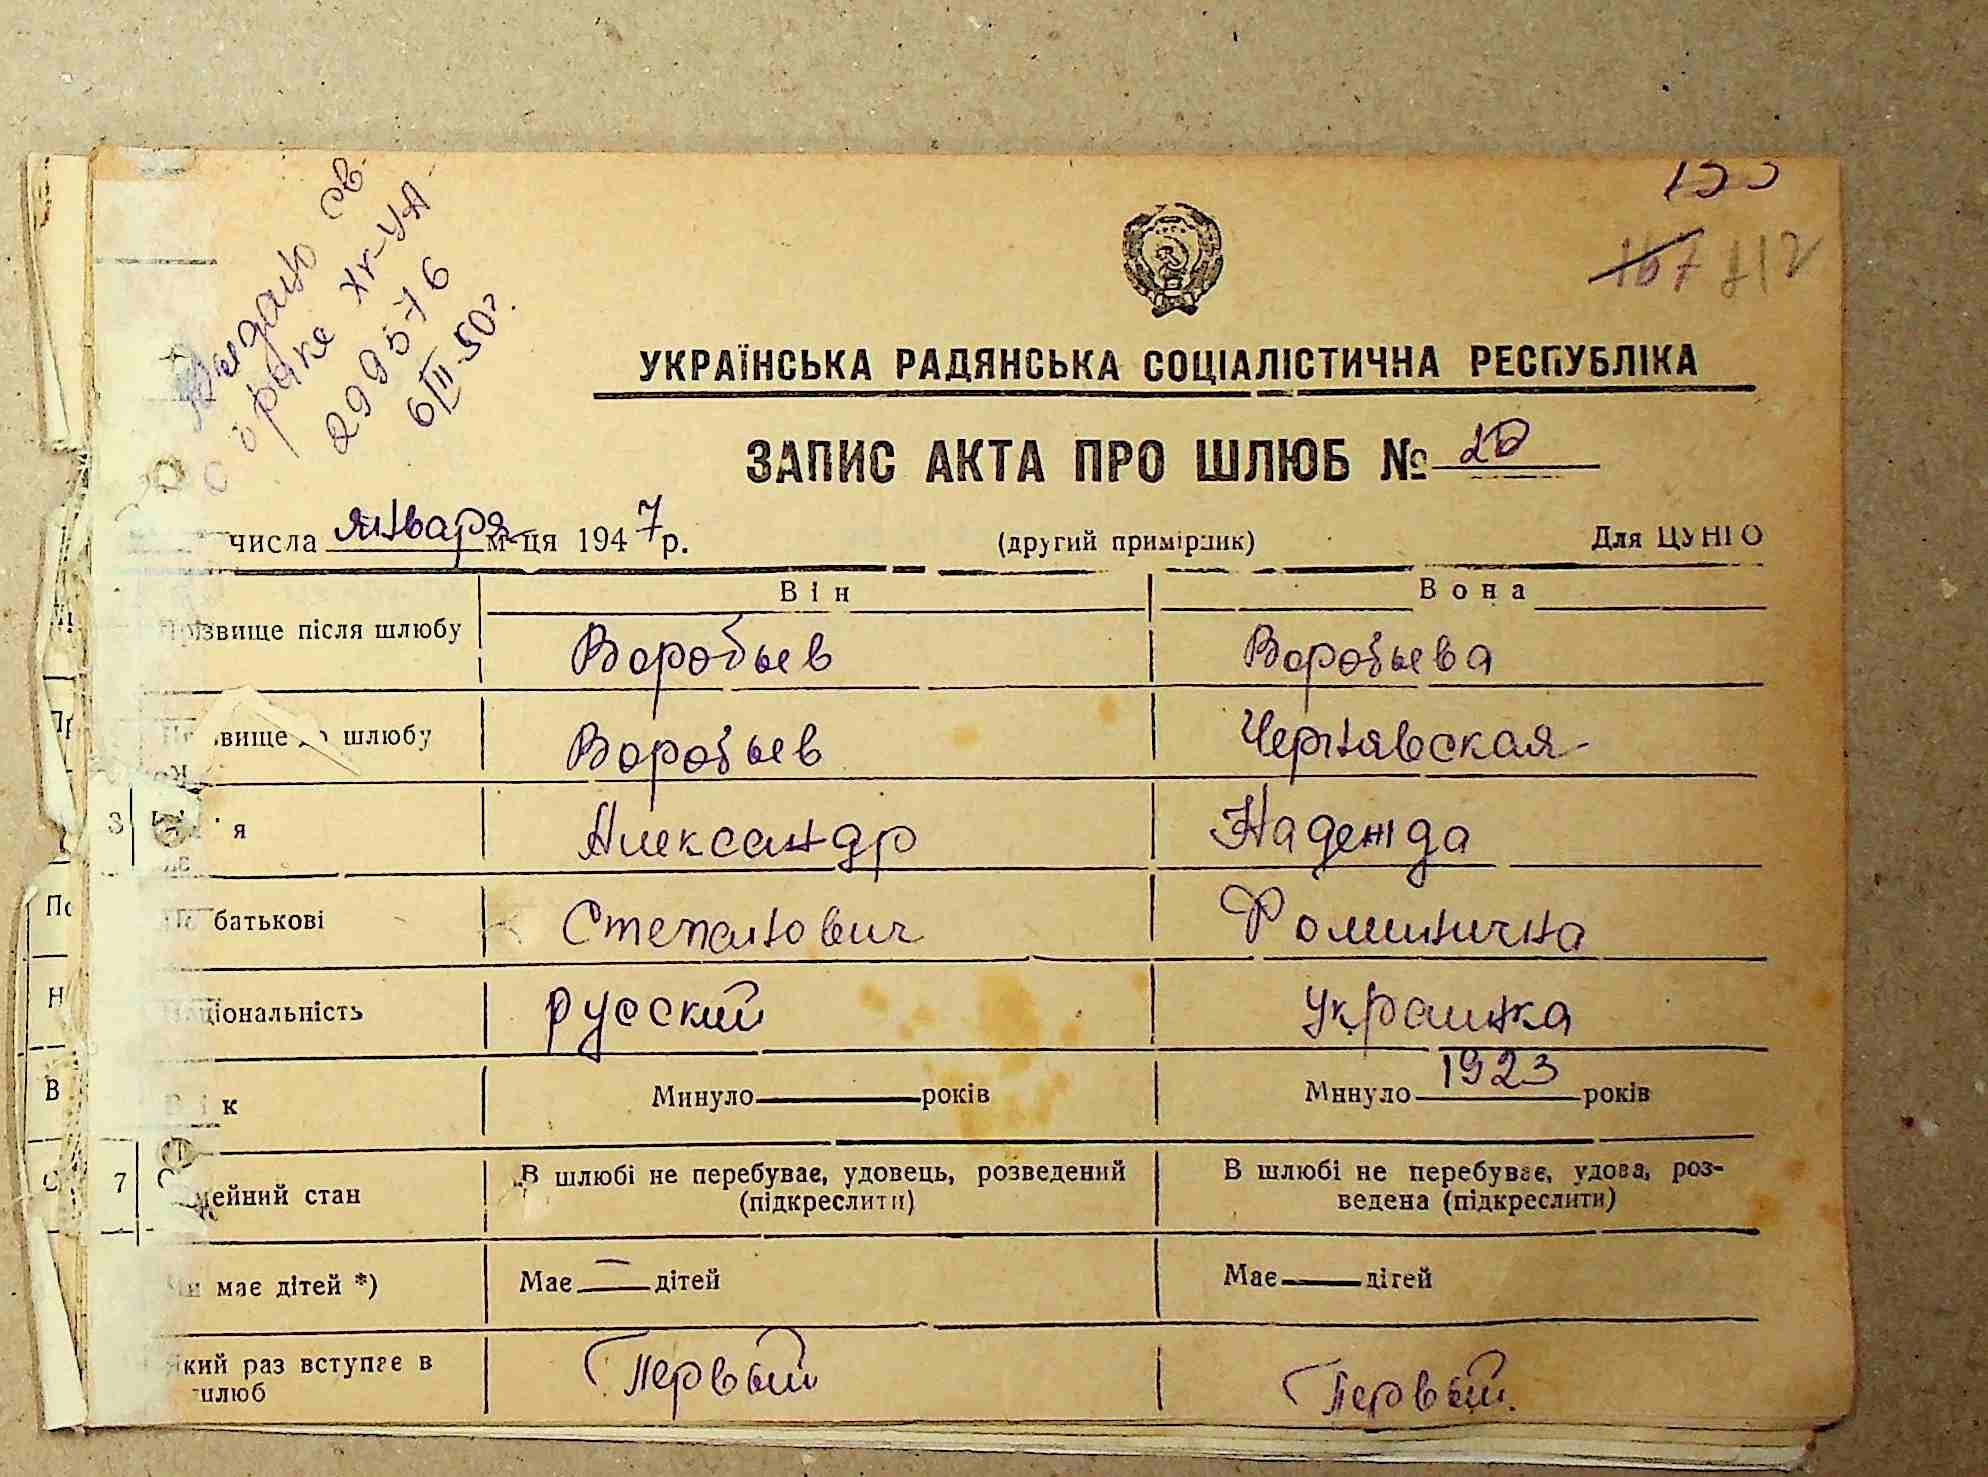 Выдано св.
о браке ХГ-УА
299576
6/III-50г.
167 712
УКРАЇНСЬКА РАДЯНСЬКА СОЦІАЛІСТИЧНА РЕСПУБЛІКА
ЗАПИС АКТА ПРО ШЛЮБ № 20
числа января м-ця 1947 р. (другий примірник) Для ЦУНГО
Він Вона
Прізвище після шлюбу Воробьев Воробьева
Прізвище до шлюбу Воробьев Чернявская
я Александр Надежда
По батькові Степанович Фоминична
Національність русский украинка
Вік Минуло років Минуло 1923 років
7
мейний стан В шлюбі не перебуває, удовець, розведений В шлюбі не перебуває, удова, роз-
(підкреслити) ведена (підкреслити)
Чи має дітей *) Має — дітей Має дітей
Який раз вступає в Первый Первый.
шлюб